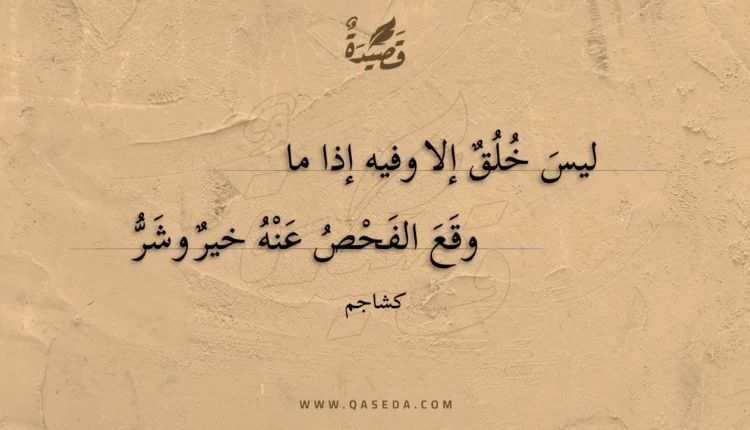 قَصِيْدَةٌ
ليسَ خُلُقٌ إلا وفيه إذا ما
وقَعَ الفَحْصُ عَنْهُ خيرٌ وشَرُّ
كشاجم
WWW.QASEDA.COM